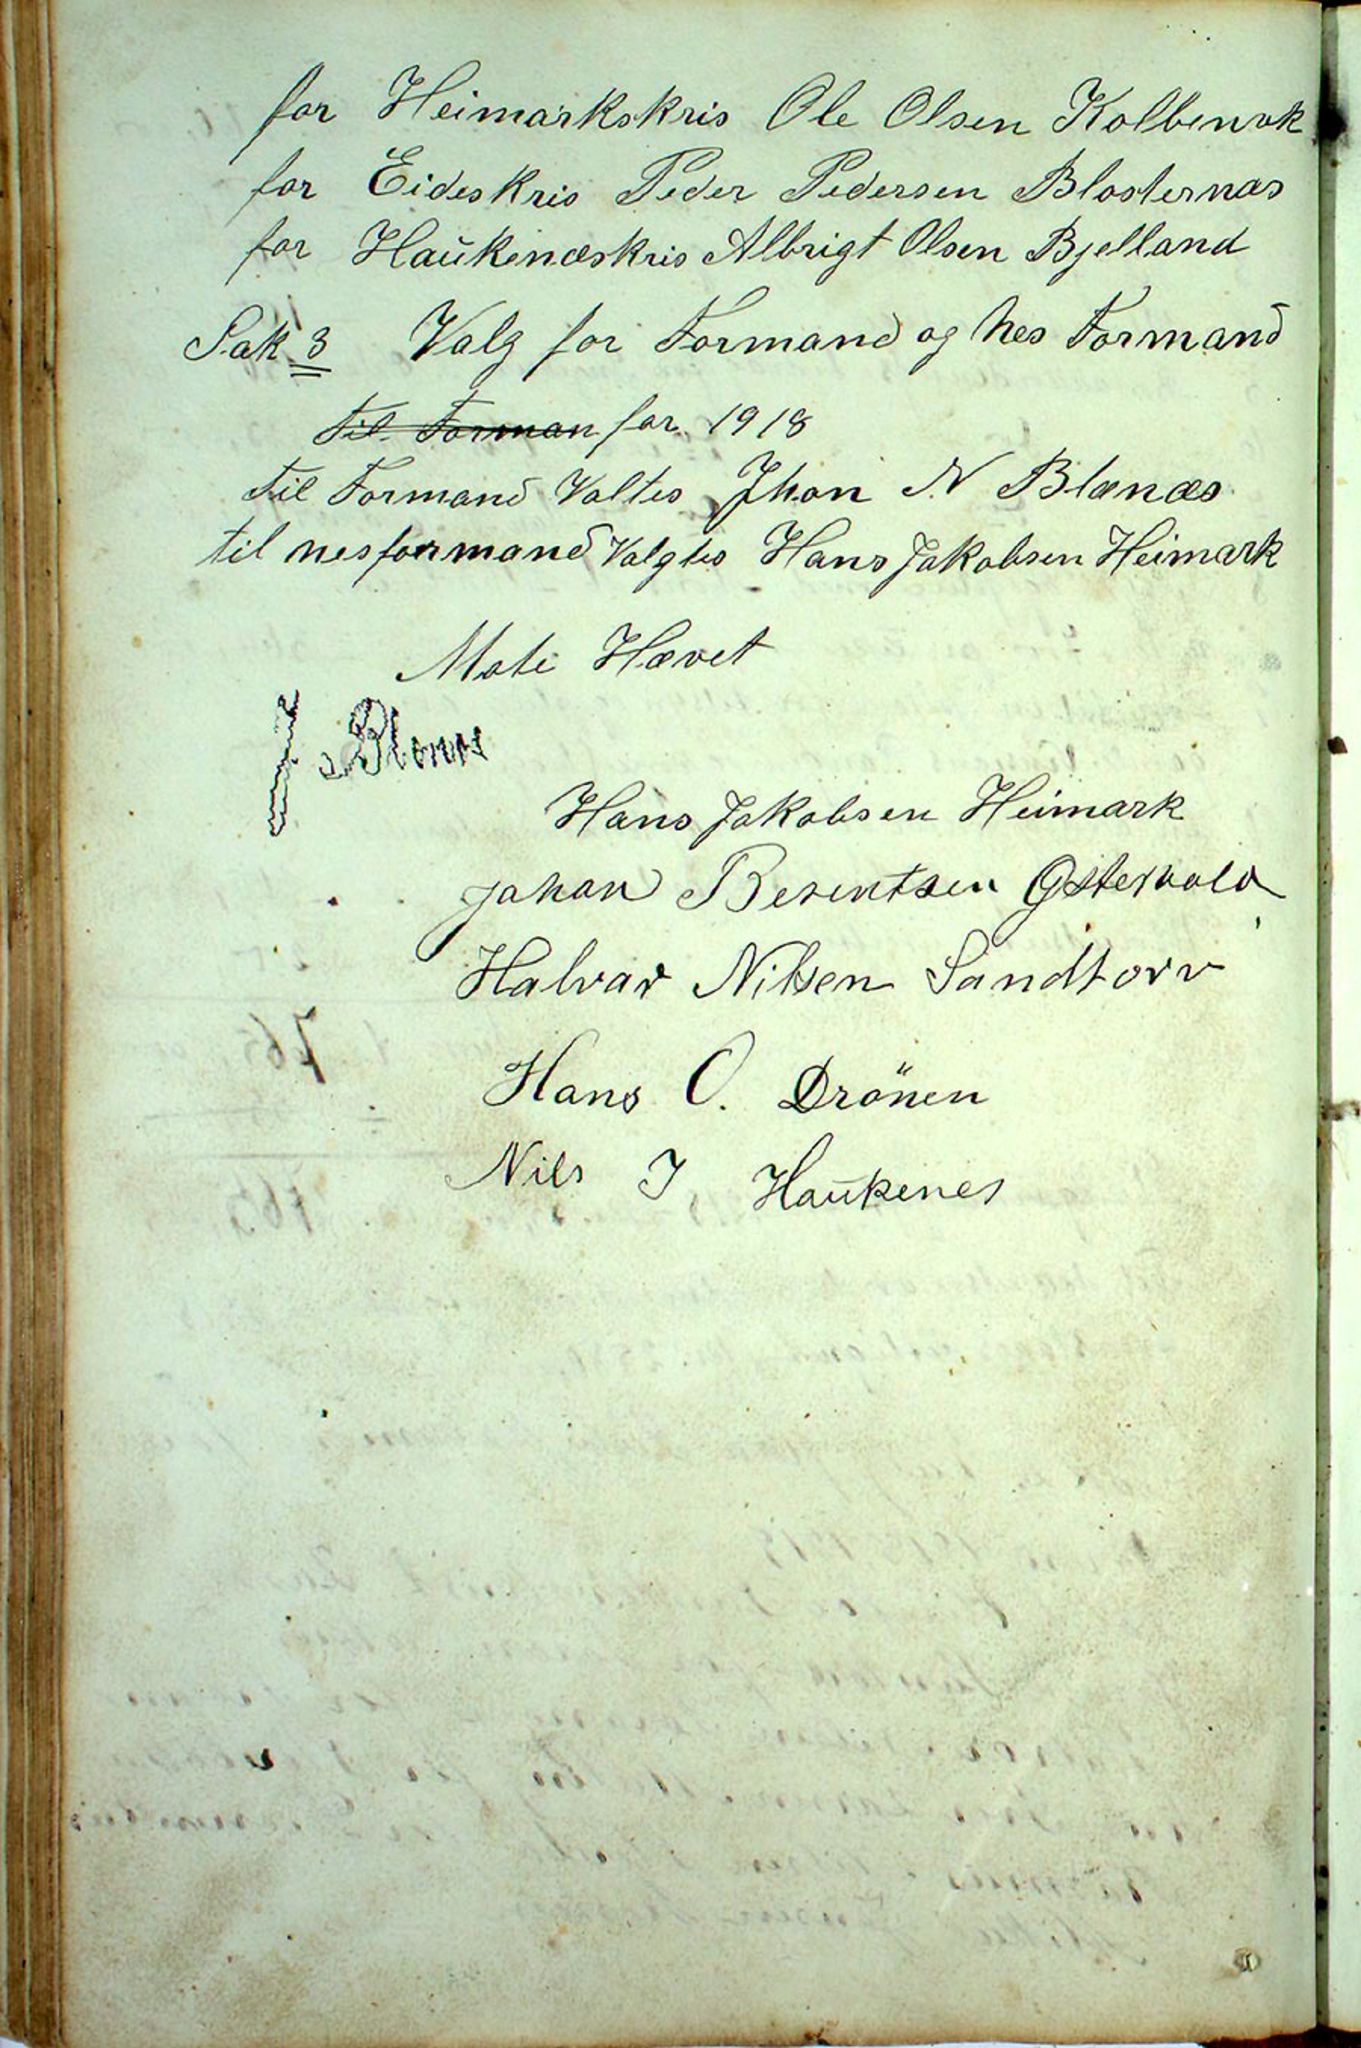 for Heimarkskris Ole Olsen Kolbenvk
for Eideskris Peder Pedersen Blosternæs
for Haukenæskris Albrigt Olsen Bjelland
Sak 3 Valg for Formand og nes Formand
Til Forman for 1918
Til Formand Valtes Jhon N Blænæs
til nesformand Valgtes Hans Jakobsen Heimark
Mote Hævet
J Blænes
Hans Jakobsen Heimark
Johan Berentsen Østervold
Halvar Nilsen Sandtorv
Hans O. Drönen
Nils J Haukenes